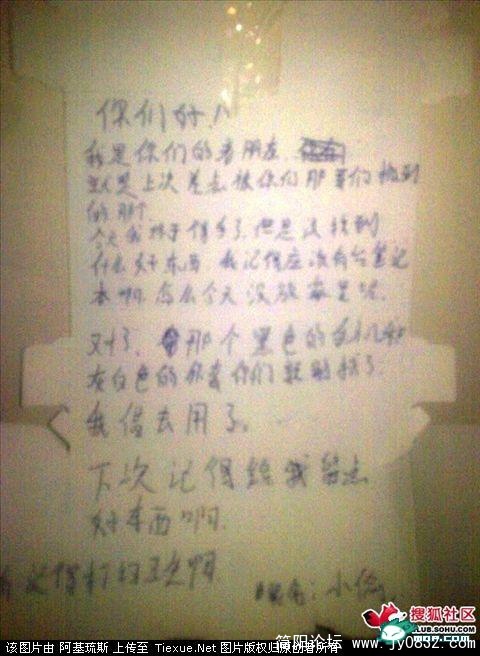 你们好！
我是你们的老朋友.
就是上次差点被你们那哥们抱到
的那个
今天我终于得手了.但是没找到
什么好东西.我记得应该有台笔记
本啊.怎么今天没放家里呢.
对了.那个黑色的手机和
在白色的
我借去用了。
下次记得给我留点
好东西啊.
记得打扫卫生啊
小偷
搜狐社区
CLUB.SOHU.COM
简阳论坛
www.jy0832.com
该图片由 阿基琉斯 上传至 Tiexue.Net 图片版权归原创者所有